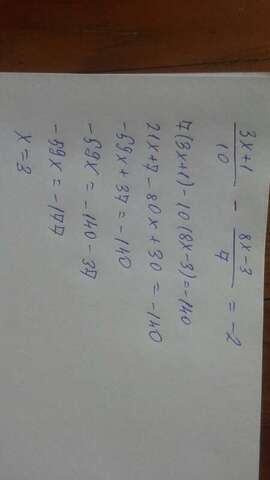 3x+1/10 - 8x-3/7 = -2
7(3x+1)-10(8x-3)=-140
21x+7-80x+30=-140
-59x+37=-140
-59x=-140-37
-59x=-177
x=3